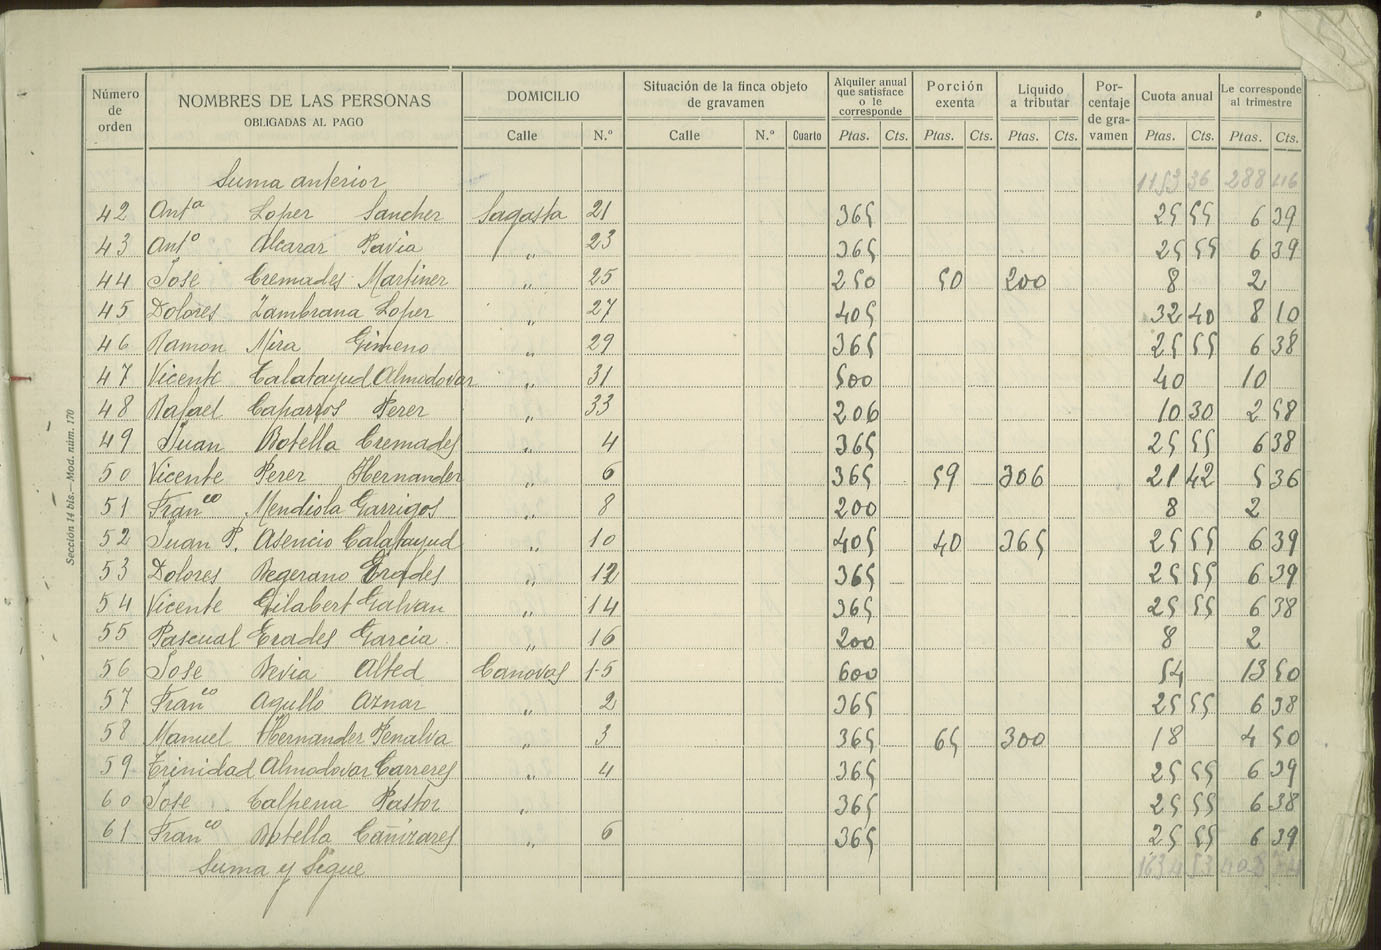 Número de orden NOMBRES DE LAS PERSONAS OBLIGADAS AL PAGO DOMICILIO Situación de la finca objeto de gravamen Alquiler anual que satisface o le corresponde Porción exenta Líquido a tributar Porcentaje de gravamen Cuota anual Le corresponde al trimestre
Calle N.º Calle N.º Cuarto Ptas. Cts. Ptas. Cts. Ptas. Cts. Ptas. Cts. Ptas. Cts.
Suma anterior 1153 36 288
42 Antª Loper Sancher Sagasta 21 365 25 55 6 39
43 Antº Alcarar Pavia " 23 365 25 55 6 39
44 Jose Cremades Martiner " 25 250 50 200 8 2
45 Dolores Zambrana Loper " 27 405 32 40 8 10
46 Ramon Mira Gimeno " 29 365 25 55 6 38
47 Vicente Calatayud Almodovar " 31 500 40 10
48 Rafael Caparros Perer " 33 206 10 30 2 58
49 Juan Botella Cremades " 4 365 25 55 6 38
50 Vicente Perer Hernander " 6 365 59 306 21 42 5 36
51 Franco Mendiola Garrigos " 8 200 8 2
52 Juan P. Asencio Calatayud " 10 405 40 365 25 55 6 39
53 Dolores Begerano Erades " 12 365 25 55 6 39
54 Vicente Gilabert Galvan " 14 365 25 55 6 38
55 Pascual Erades Garcia " 16 200 8 2
56 Jose Bevia Alted Canovas 1-5 600 54 13 50
57 Franco Agullo Aznar " 2 365 25 55 6 38
58 Manuel Hernander Penalva " 3 365 65 300 18 4 50
59 Trinidad Almodovar Carreres " 4 365 25 55 6 39
60 Jose Calpena Pastor " 365 25 55 6 38
61 Franco Botella Cañizares " 6 365 25 55 6 39
Suma y Sigue
Sección 14 bis.—Mod. núm. 170